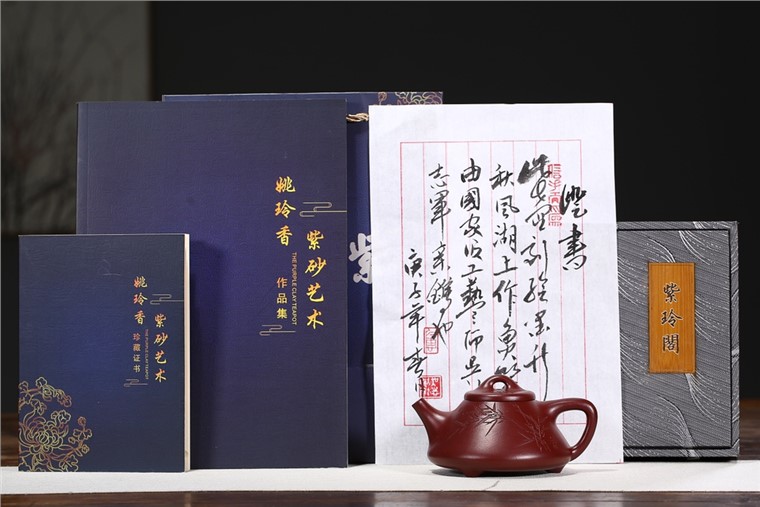 姚玲香
紫砂艺术
THE PURPLE CLAY TEAPOT
作品集
姚玲香
紫砂艺术
THE PURPLE CLAY TEAPOT
珍藏证书
紫
證書
秋风湖上作
由國家级工藝师吴
志軍亲鐫也
庚子年春月
紫玲閣